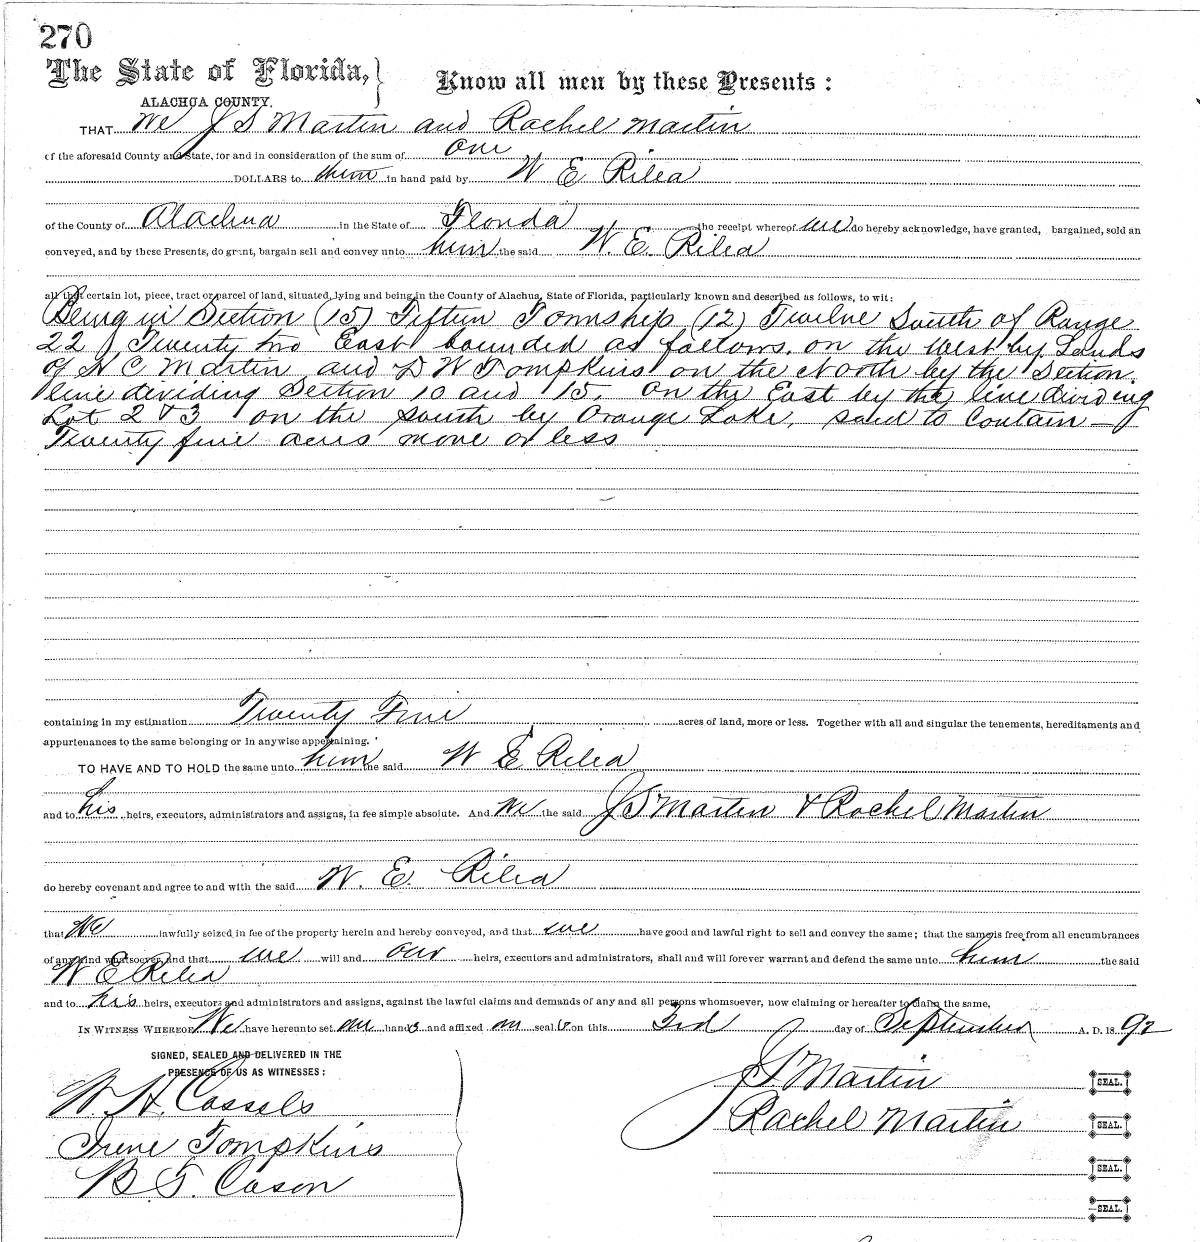 270
The State of Florida,
ALACHUA COUNTY.
Know all men by these Presents:
THAT We J S Martin and Rachel Martin
of the aforesaid County and State, for and in consideration of the sum of One
DOLLARS to them in hand paid by W E Rilea
of the County of Alachua in the State of Florida the receipt whereof we do hereby acknowledge, have granted, bargained, sold an
conveyed, and by these Presents, do grant, bargain sell and convey unto him the said W. E. Rilea
all that certain lot, piece, tract or parcel of land, situated, lying and being in the County of Alachua, State of Florida, particularly known and described as follows, to wit:
Being in Section (15) Fifteen Township (12) Twelve South of Range
22 Twenty two East bounded as follows. on the West by Lands
of N C Martin and D W Tompkins on the North by the Section.
line dividing Section 10 and 15. On the East by the line dividing
Lot 2 & 3 on the South by Orange Lake, said to Contain
Twenty five acres more or less
containing in my estimation Twenty Five acres of land, more or less. Together with all and singular the tenements, hereditaments and
appurtenances to the same belonging or in anywise appertaining.
TO HAVE AND TO HOLD the same unto him the said W E Rilea
and to his heirs, executors, administrators and assigns, in fee simple absolute. And We the said J S Martin & Rachel Martin
do hereby covenant and agree to and with the said W. E. Rilea
that We lawfully seized in fee of the property herein and hereby conveyed, and that we have good and lawful right to sell and convey the same; that the same is free from all encumbrances
of any kind whatsoever, and that we will and our heirs, executors and administrators, shall and will forever warrant and defend the same unto him the said
W E Rilea
and to his heirs, executors and administrators and assigns, against the lawful claims and demands of any and all persons whomsoever, now claiming or hereafter to claim the same,
IN WITNESS WHEREOF We have hereunto set our hands and affixed our seal s on this 3rd day of September A. D. 18 92
SIGNED, SEALED AND DELIVERED IN THE
PRESENCE OF US AS WITNESSES:
W. H. Cassels
Irene Tompkins
B. T. Cason
J. S. Martin SEAL.
Rachel Martin SEAL.
SEAL.
SEAL.